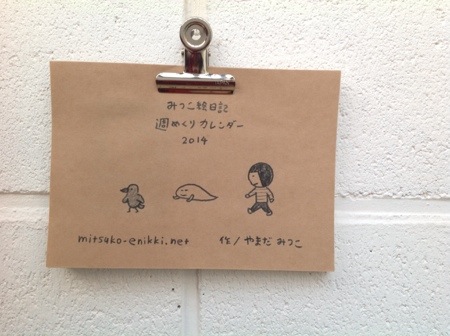 みつこ絵日記
週めくりカレンダー
2014
mitsuko-enikki.net
作/やまだ みつこ